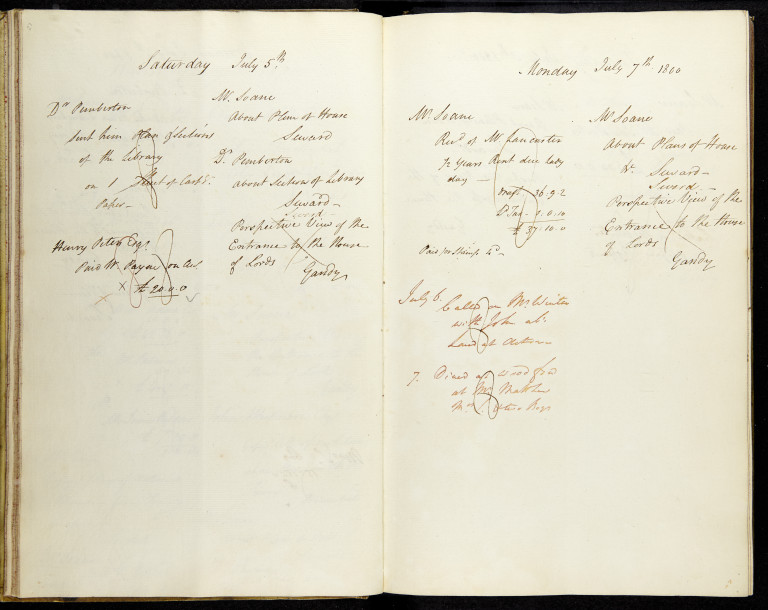 Saturday July 5th.
Dr Pemberton
sent him Plan & Sections
of the Library
on 1 Sheet of
Paper -
Henry Peters Esqr.
Paid W. Payne on Acct.
X £ 20.0.0
Mr. Soane
About Plan of House
Seward
Dr. Pemberton
About Section of Library
Seward -
Perspective View of the
Entrance to the House
of Lords
Gandy
Monday July 7th 1800
Mr. Soane
Recd of Mr Lancaster
1/2 Years Rent due Lady
day -
36.9.2
P Tax - 1.0.10
£ 37.10.0
Paid for Stamp 4d -
July 6. Called on Mr. Winter
with John abt.
Land at Acton -
7. Dined at Woodford
at Mr
Mr Soane
About Plans of House
&c Seward -
Seward -
Perspective View of the
Entrance to the House
of Lords
Gandy